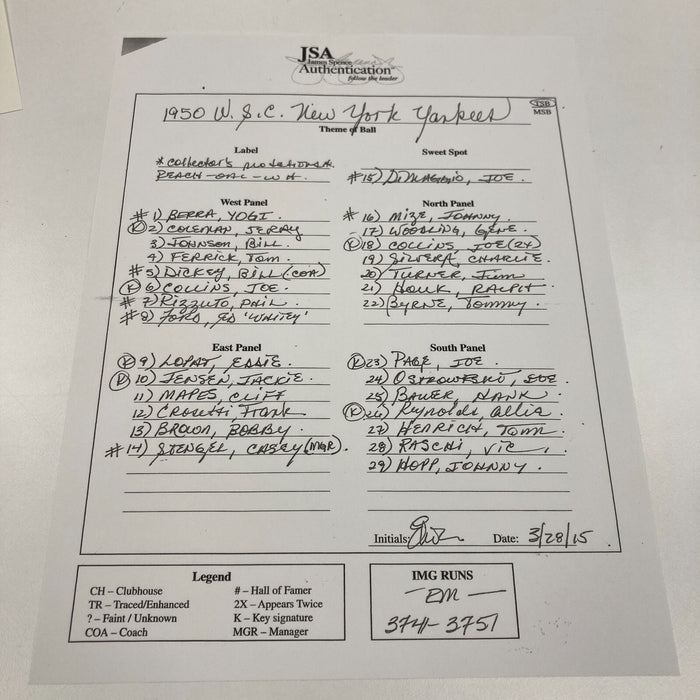 JSA
James Spence
Authentication
follow the leader
1950 W.S.C. New York Yankees
TSB
MSB
Theme of Ball
Label
* collector's notations *
REACH - OAL - W.H.
Sweet Spot
#15) DiMAGGIO, JOE.
West Panel
# 1) BERRA, YOGI.
(K) 2) COLEMAN, JERRY
3) JOHNSON, BILL.
4) FERRICK, TOM.
#5) DICKEY, BILL (COA)
(K) 6) COLLINS, JOE.
# 7) RIZZUTO, PHIL.
# 8) FORD, ED 'WHITEY'
North Panel
# 16) MIZE, JOHNNY.
17) WOODLING, GENE.
(K) 18) COLLINS, JOE (2X)
19) SILVERA, CHARLIE.
20) TURNER, Jim
21) HOUK, RALPH.
22) Byrne, Tommy.
East Panel
(K) 9) LOPAT, EDDIE.
(K) 10) JENSEN, JACKIE.
11) MAPES, CLIFF
12) Crosetti, Frank
13) BROWN, BOBBY.
# 14) STENGEL, CASEY (MGR).
South Panel
(K) 23) PAGE, JOE.
24) OSTROWSKI, JOE.
25) BAUER, HANK.
(K) 26) Reynolds, Allie.
27) HENRICH, Tomm.
28) RASCHI, Vic.
29) HOPP, JOHNNY.
Initials:
Date: 3/28/15
Legend
CH – Clubhouse
# – Hall of Famer
TR – Traced/Enhanced
2X – Appears Twice
? – Faint / Unknown
K – Key signature
COA – Coach
MGR – Manager
IMG RUNS
— EM —
3741 - 3751